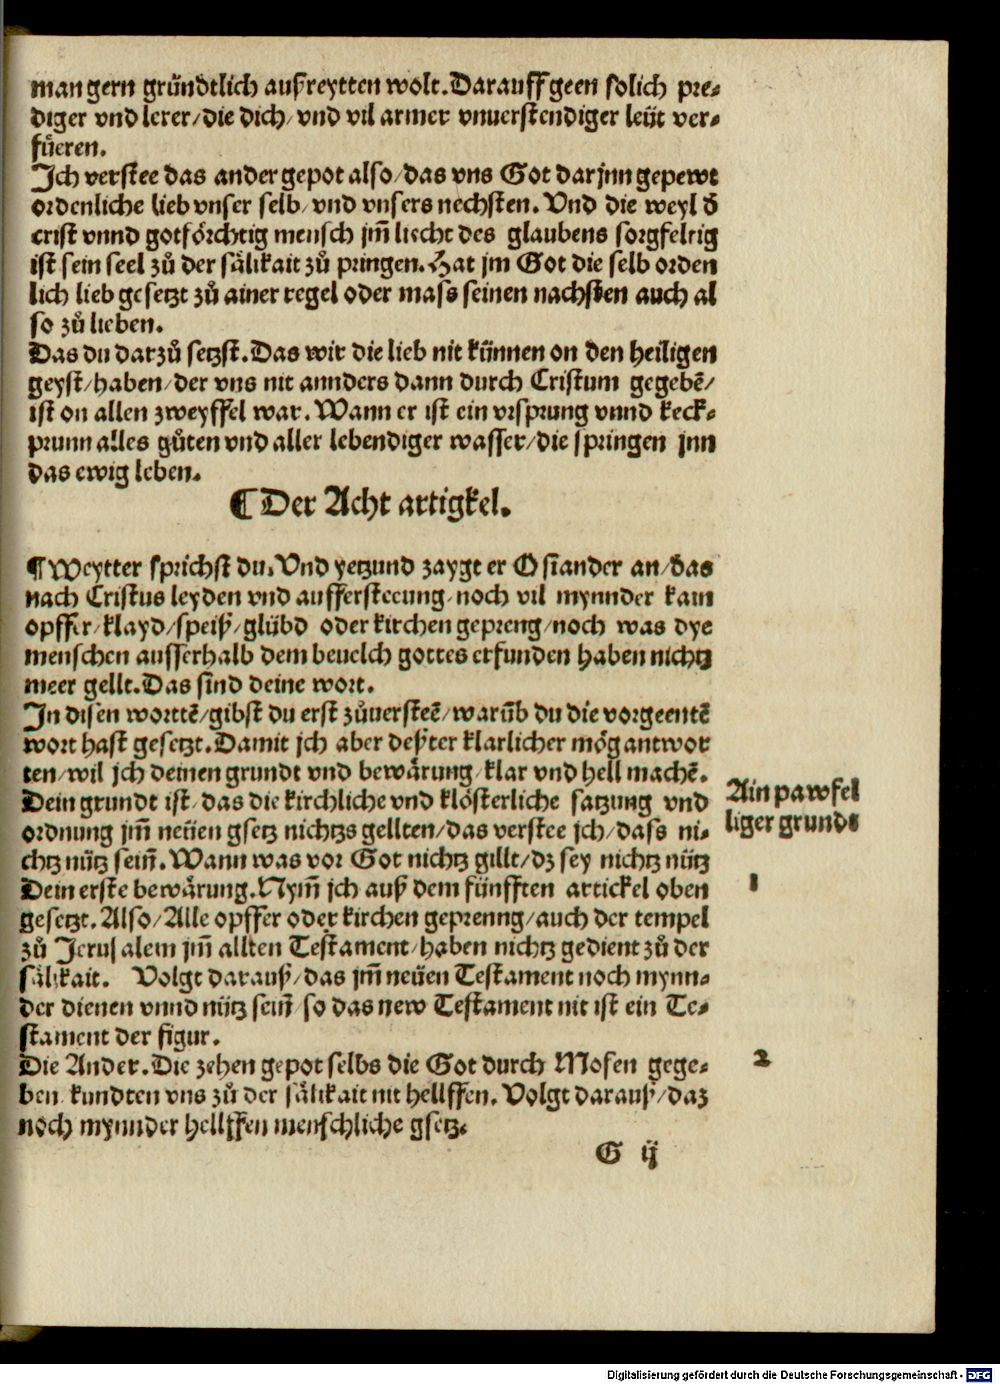 man gern gründtlich außreytten wolt. Darauff geen solich pre⸗
diger vnd lerer/die dich/vnd vil armer vnuerstendiger leüt ver⸗
füeren.
Ich verstee das ander gepot also/das vns Got darjnn gepewt
ordenliche lieb vnser selb/vnd vnsers nechsten. Vnd die weyl d̄
crist vnnd gotförchtig mensch jm̄ liecht des glaubens sorgfeltig
ist sein seel zů der sälikait zů pringen. Hat jm Got die selb orden
lich lieb gesetzt zů ainer regel oder mass seinen nachsten auch al
so zů lieben.
Das du darzů setzst. Das wir die lieb nit künnen on den heiligen
geyst/haben/der vns nit annders dann durch Cristum gegebē/
ist on allen zweyffel war. Wann er ist ein vrsprung vnnd keck⸗
prunn alles gůten vnd aller lebendiger wasser/die springen jnn
das ewig leben.
¶ Der Acht artigkel.
¶ Weytter sprichst du. Vnd yetzund zaygt er Osiander an/das
nach Cristus leyden vnd auffersteeung/noch vil mynnder kain
opffer/klayd/speiß/glübd oder kirchen gepreng/noch was dye
menschen ausserhalb dem beuelch gottes erfunden haben nichtz
meer gellt. Das sind deine wort.
In disen worttē/gibst du erst zůuersteē/warūb du die vorgeentē
wort hast gesetzt. Damit jch aber deßter klarlicher mög antwor
ten/wil jch deinen grundt vnd bewärung/klar vnd hell machē.
Dein grundt ist/das die kirchliche vnd klösterliche satzung vnd
ordnung jm̄ neüen gsetz nichtzs gellten/das verstee jch/dass ni⸗
chtz nütz sein̄. Wann was vor Got nichtz gillt/dz sey nichtz nütz
Dein erste bewärung. Nym̄ jch auß dem fünfften artickel oben
gesetzt. Also/Alle opffer oder kirchen geprenng/auch der tempel
zů Jerusalem jm̄ allten Testament/haben nichtz gedient zů der
sälikait. Volgt darauß/das jm̄ neüen Testament noch mynn⸗
der dienen vnnd nütz sein̄ so das new Testament nit ist ein Te⸗
stament der figur.
Die Ander. Die zehen gepot selbs die Got durch Mosen gege⸗
ben kundten vns zů der sälikait nit hellffen. Volgt darauß/daz
noch mynnder hellffen menschliche gsetz.
G ij
Ain pawfel
liger grundt
1
2
Digitalisierung gefördert durch die Deutsche Forschungsgemeinschaft - DFG